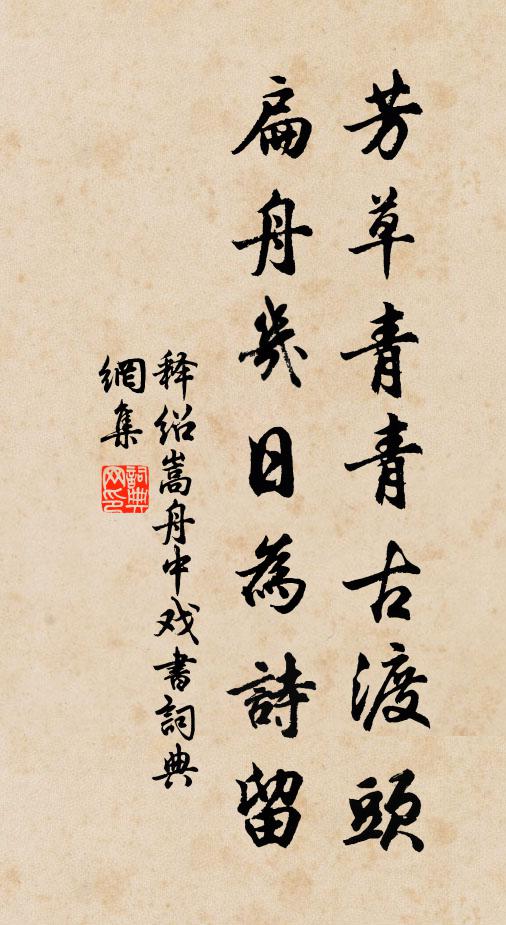 芳草青青古渡頭
扁舟幾日為詩留
释绍嵩舟中戏書詞典
網集
詞典
网印